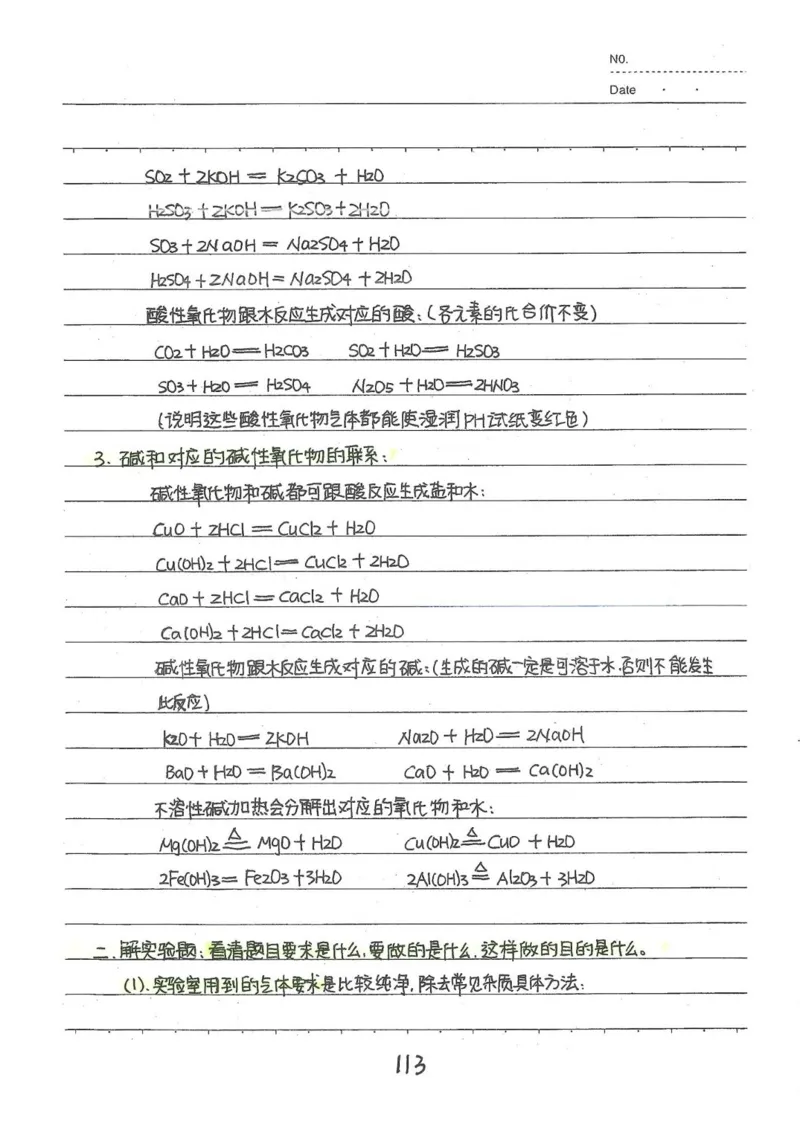 NO.
Date · ·
SO2 + 2KOH = K2CO3 + H2O
H2SO3 + 2KOH = K2SO3 + 2H2O
SO3 + 2NaOH = Na2SO4 + H2O
H2SO4 + 2NaOH = Na2SO4 + 2H2O
酸性氧化物跟水反应生成对应的酸:(各元素的化合价不变)
CO2 + H2O = H2CO3 SO2 + H2O = H2SO3
SO3 + H2O = H2SO4 N2O5 + H2O = 2HNO3
(说明这些酸性氧化物气体都能使湿润PH试纸变红色)
3. 碱和对应的碱性氧化物的联系:
碱性氧化物和碱都可跟酸反应生成盐和水:
CuO + 2HCl = CuCl2 + H2O
Cu(OH)2 + 2HCl = CuCl2 + 2H2O
CaO + 2HCl = CaCl2 + H2O
Ca(OH)2 + 2HCl = CaCl2 + 2H2O
碱性氧化物跟水反应生成对应的碱:(生成的碱一定是可溶于水.否则不能发生
此反应)
K2O + H2O = 2KOH Na2O + H2O = 2NaOH
BaO + H2O = Ba(OH)2 CaO + H2O = Ca(OH)2
不溶性碱加热会分解出对应的氧化物和水:
Mg(OH)2 =△= MgO + H2O Cu(OH)2 =△= CuO + H2O
2Fe(OH)3 = Fe2O3 + 3H2O 2Al(OH)3 =△= Al2O3 + 3H2O
二.解实验题:看清题目要求是什么,要做的是什么.这样做的目的是什么。
(1).实验室用到的气体要求是比较纯净,除去常见杂质具体方法:
113